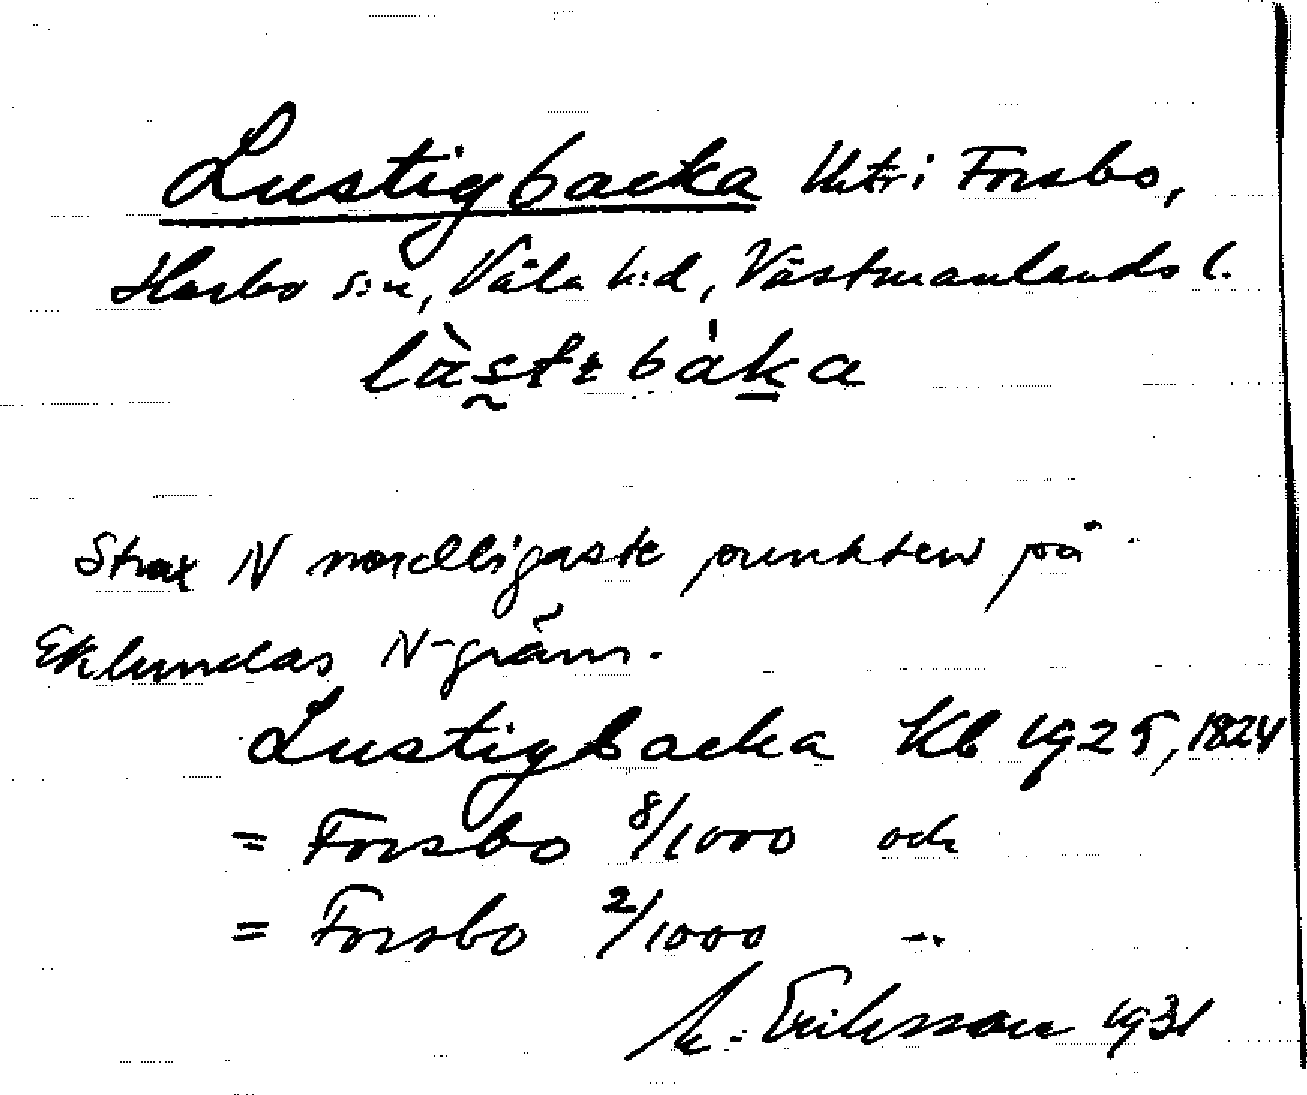 Lustigbacka lht i Forsbo,
Harbo s:n, Våla h:d, Västmanlands l.
Strax N nordligaste punkten på
Eklundas N-gräns.
Lustigbacka Kb 1925, 1824
= Forsbo 8/1000 och
= Forsbo 2/1000 -"-
M. Eriksson 1931